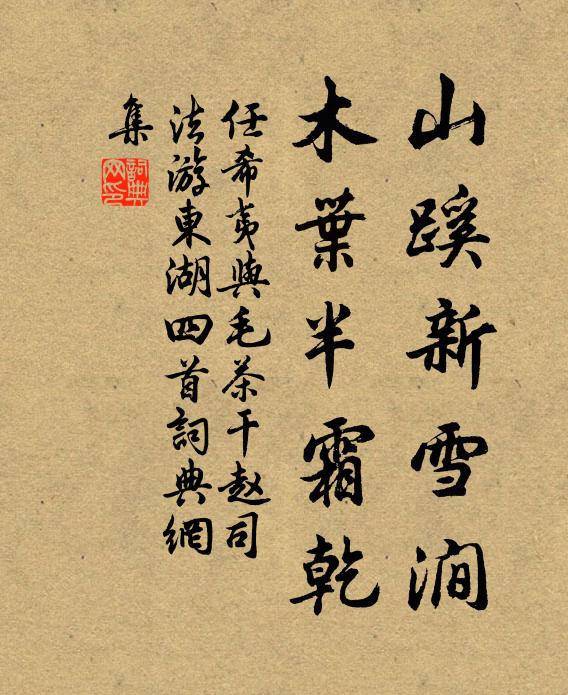 山蹊新雪涧
木葉半霜乾
任希夷與毛茶干赵司
法游東湖四首詞典網
集
詞典
网印